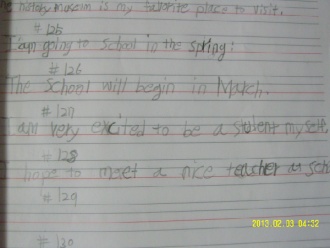 he history musesm is my favorite place to visit.
# 125
I am going to school in the spring.
# 126
The school will begin in March.
# 127
I am very excited to be a student myself
# 128
I hope to meet a nice teacher at sch
# 129
# 130
2013.02.03 04:32